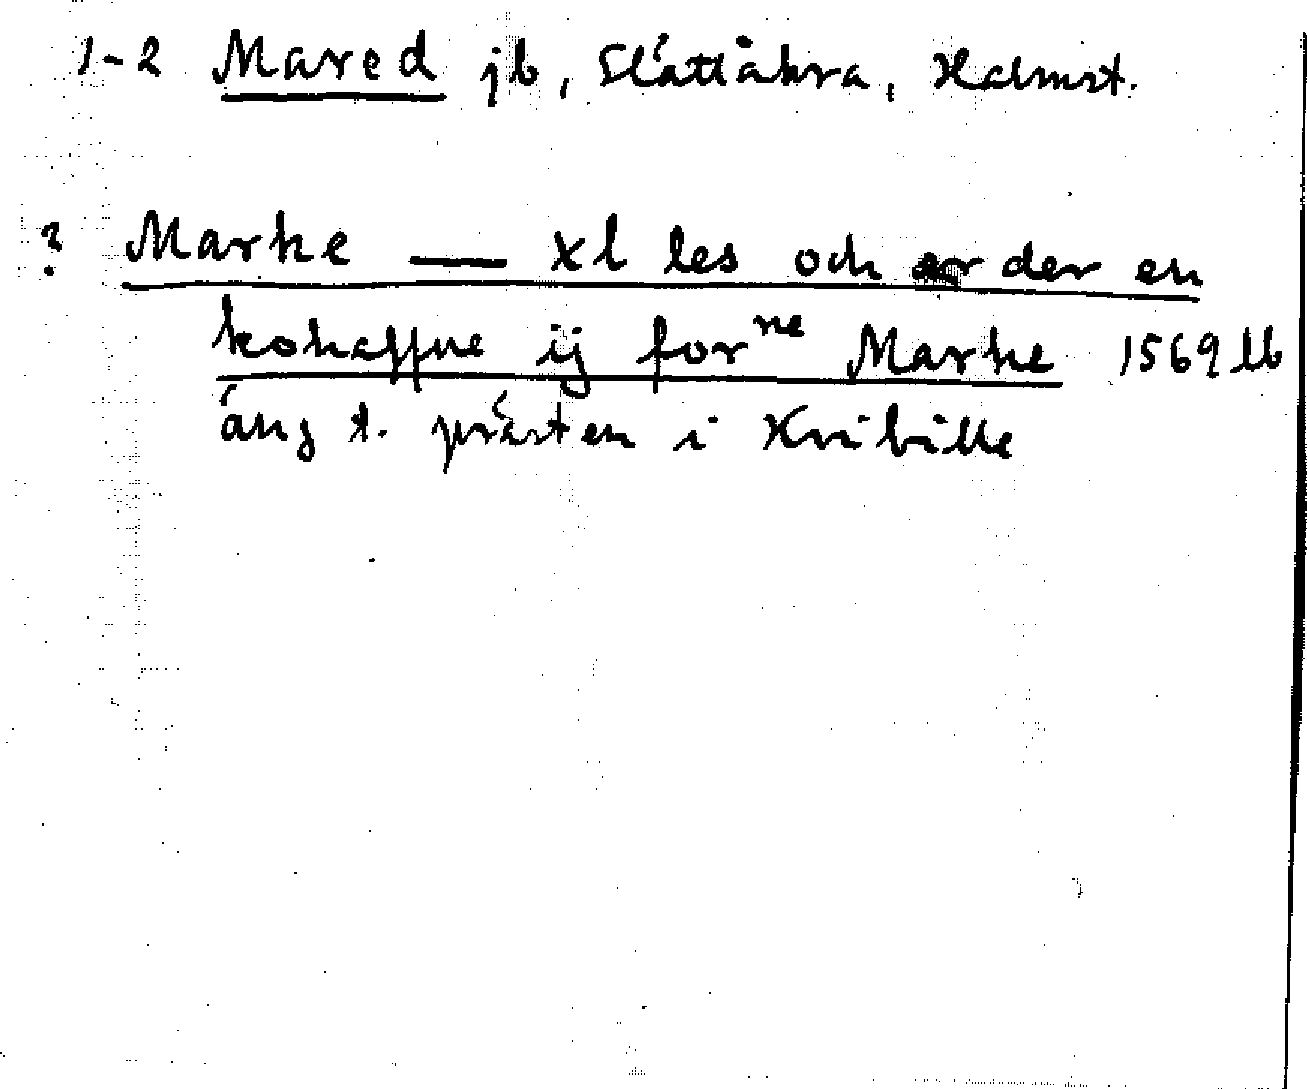 1-2 Mared jb, Slättåkra, Halmst.
? Marke — xl les och er der en
kohaffue ij for^ne Marke 1569 lb
äng t. prästen i Kvibille